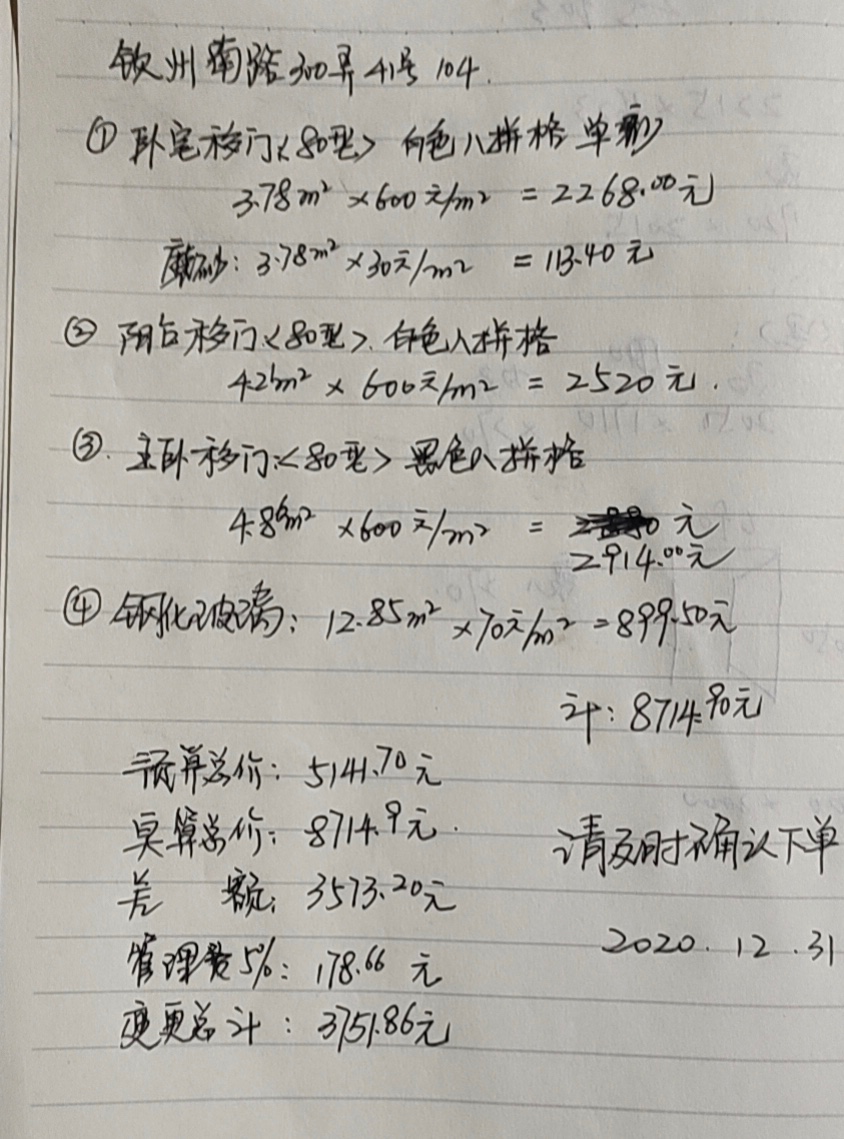 钦州南路300弄41号104.
① 卧室移门<80型> 白色八拼格 单
3.78m² ×600元/m² = 2268.00元
磨砂: 3.78m² ×30元/m² = 113.40元
② 阳台移门<80型>. 白色八拼格
4.2m² × 600元/m² = 2520元.
③. 主卧移门<80型> 黑色八拼格
4.86m² ×600元/m² = 元
2914.00元
④ 钢化玻璃: 12.85m² ×70元/m² =899.50元
计: 8714.90元
预算总价: 5141.70元
实算总价: 8714.9元.
请及时确认下单
差 额: 3573.20元
2020.12.31
管理费5%: 178.66 元
变更总计: 3751.86元